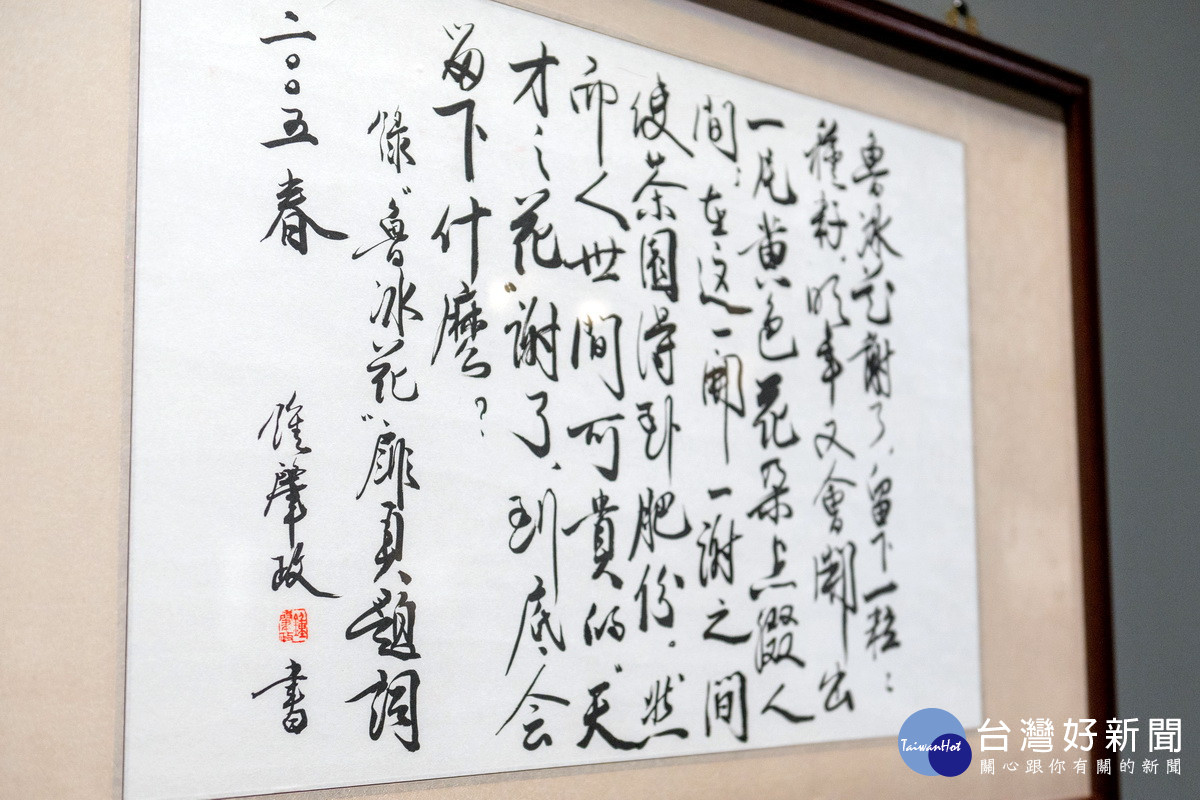 魯冰花謝了,留下一粒:
種籽,明年又會開出
一片黃色花朵点綴人
間;在這一開一謝之間
使茶園得到肥份。然
而人世間可貴的"天
才之花"謝了、到底会
留下什麼?
錄"魯冰花"扉頁題詞
二〇〇五春 鍾肇政 書
鍾肇政
TaiwanHot
台灣好新聞
關心跟你有關的新聞